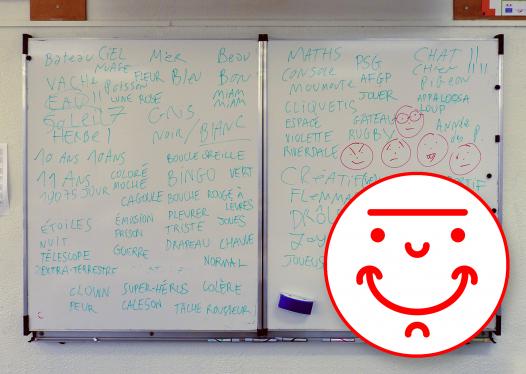 Bateau CIEL Mer Beau
NUAGE
VACHE Poisson FLEUR Bleu Bon
EAU !! LUNE ROSE MIAM
MIAM
SOLEIL GRIS
HERBE ! NOIR / BLANC
10 ANS 10 ANS BOUCLE OREILLE
11 ANS COLORÉ BINGO VERT
MOCHE
JOUR CAGOULE BOUCHE ROUGE À
LÈVRES
ÉTOILES ÉMISSION PLEURER JOUES
NUIT PRISON TRISTE
TÉLESCOPE GUERRE DRAPEAU CHAUVE
EXTRA-TERRESTRE NORMAL
CLOWN SUPER-HÉROS COLÈRE
PEUR CALESON TACHE ROUSSEUR
MATHS PSG CHAT !!
CONSOLE AFGP CHIEN !!!!
MOUMOUTE JOUER PIGEON
CLIQUETIS APPALOOSA
ESPACE GATEAU LOUP
VIOLETTE RUGBY ANNÉE
RIVERDALE